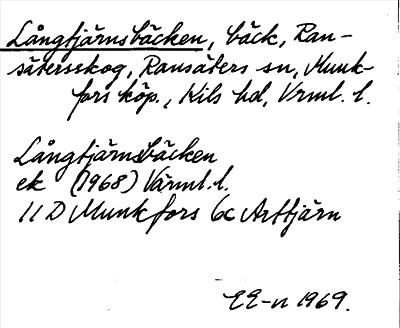 Långtjärnsbäcken, bäck, Ran-
sätersskog, Ransäters sn, Munk-
fors köp., Kils hd, Vrml. l.
Långtjärnsbäcken
ek (1968) Värml. l.
11 D Munkfors 6c Arttjärn
EE-n 1969.